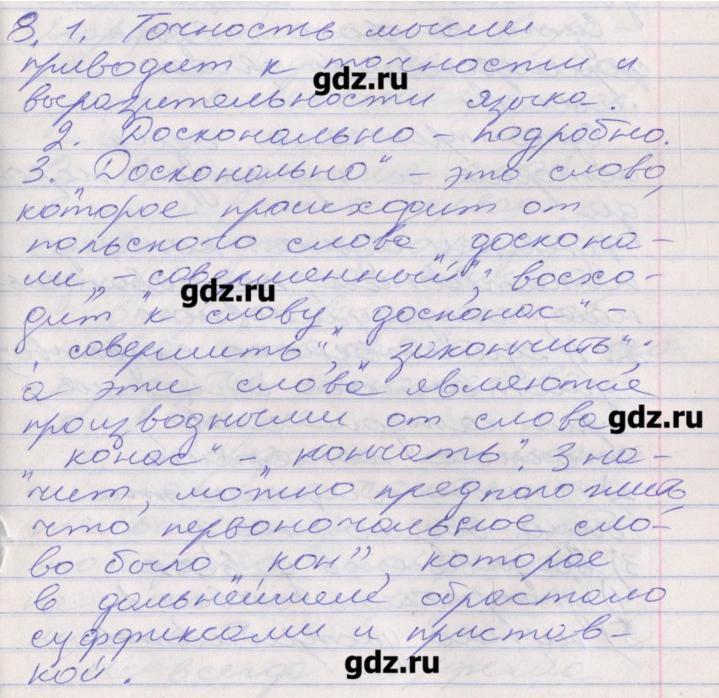 8. 1. Точность мысли
приводит к точности и
gdz.ru
выразительности языка.
2. Досконально – подробно.
3. „Досконально“ – это слово,
которое происходит от
польского слова „доскона-
ли“ – „совершенный“; восхо-
gdz.ru
дит к слову „досконас“ –
„совершить“, „закончить“;
а эти слова являются
производными от слова
gdz.ru
„конас“ – „кончать“. Зна-
чит, можно предположить,
что первоначальное сло-
во было „кон“, которое
в дальнейшем обрастало
суффиксами и пристав-
кой.
gdz.ru